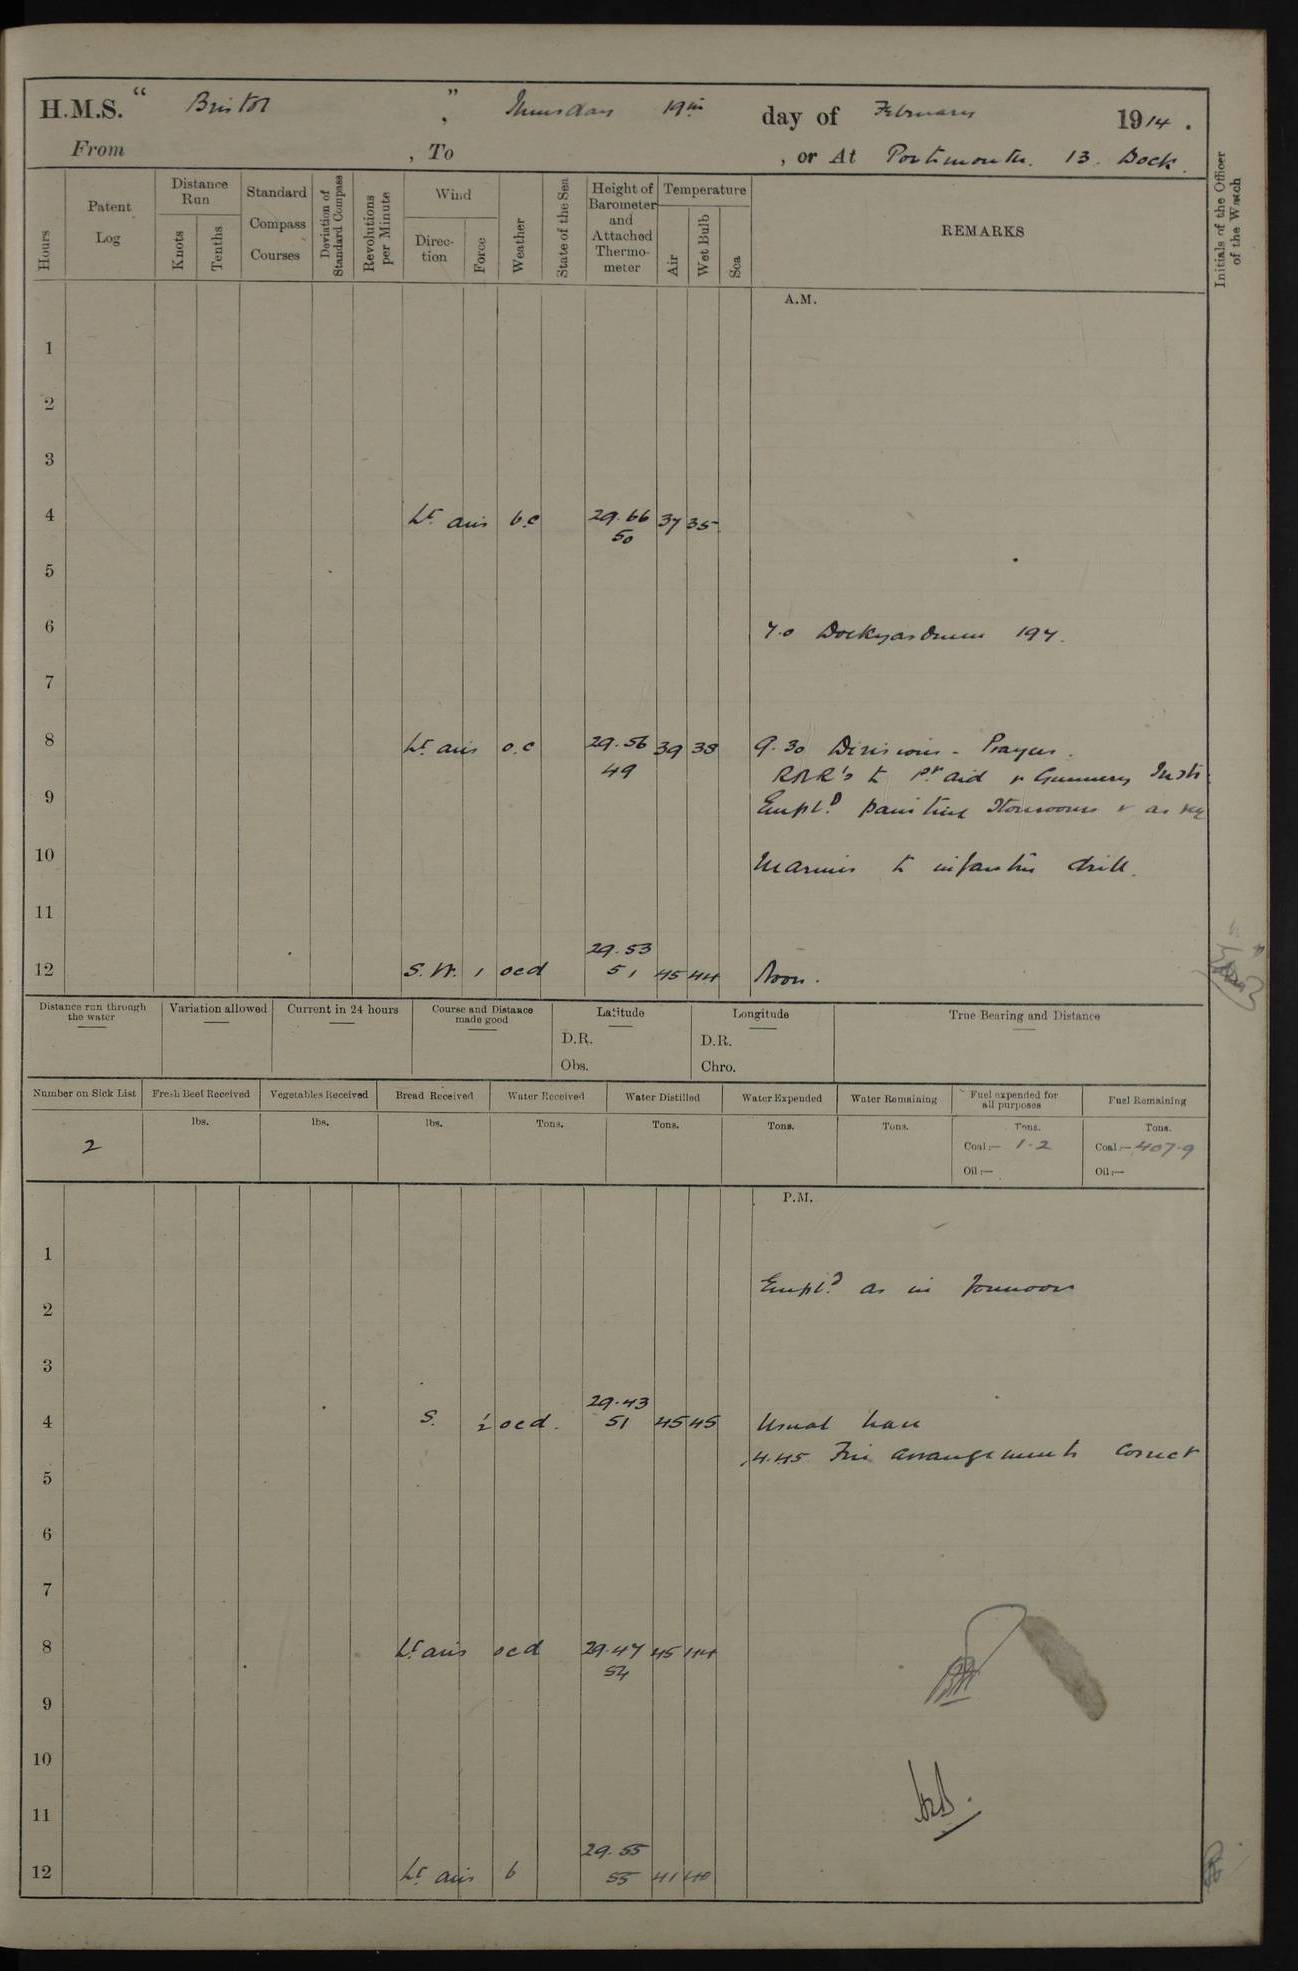 H.M.S. " Bristol " , Thursday 19th day of February 1914 .
From , To , or At Portsmouth. 13. Dock.
Hours
Patent Log
Distance Run
Knots
Tenths
Standard Compass Courses
Deviation of Standard Compass
Revolutions per Minute
Wind
Direction
Force
Weather
State of the Sea
Height of Barometer and Attached Thermometer
Temperature
Air
Wet Bulb
Sea
REMARKS
Initials of the Officer of the Watch
A.M.
1
2
3
4 Lt airs b.c 29.66 37 35
50
5
6 7.0 Dockyardmen 197.
7
8 Lt airs o.c 29.56 39 38 9.30 Divisions - Prayers.
49 RNR's to 1st aid & Gunnery Instn
9 Empld painting Storerooms & as req
10 Marines to infantry drill.
11
29.53
12 S.W. 1 ocd 51 45 44 Noon.
Distance run through the water
Variation allowed
Current in 24 hours
Course and Distance made good
Latitude
D.R.
Obs.
Longitude
D.R.
Chro.
True Bearing and Distance
Number on Sick List
Fresh Beef Received
Vegetables Received
Bread Received
Water Received
Water Distilled
Water Expended
Water Remaining
Fuel expended for all purposes
Fuel Remaining
lbs. lbs. lbs. Tons. Tons. Tons. Tons. Tons. Tons.
2 Coal:— 1.2 Coal:— 407.9
Oil:— Oil:—
P.M.
1
Empld as in forenoon
2
3
29.43
4 S. ½ ocd. 51 45 45 Usual leave
4.45 Fire arrangements correct
5
6
7
8 Lt airs ocd 29.47 45 44
54
9
10
11
29.55
12 Lt airs b 55 41 40